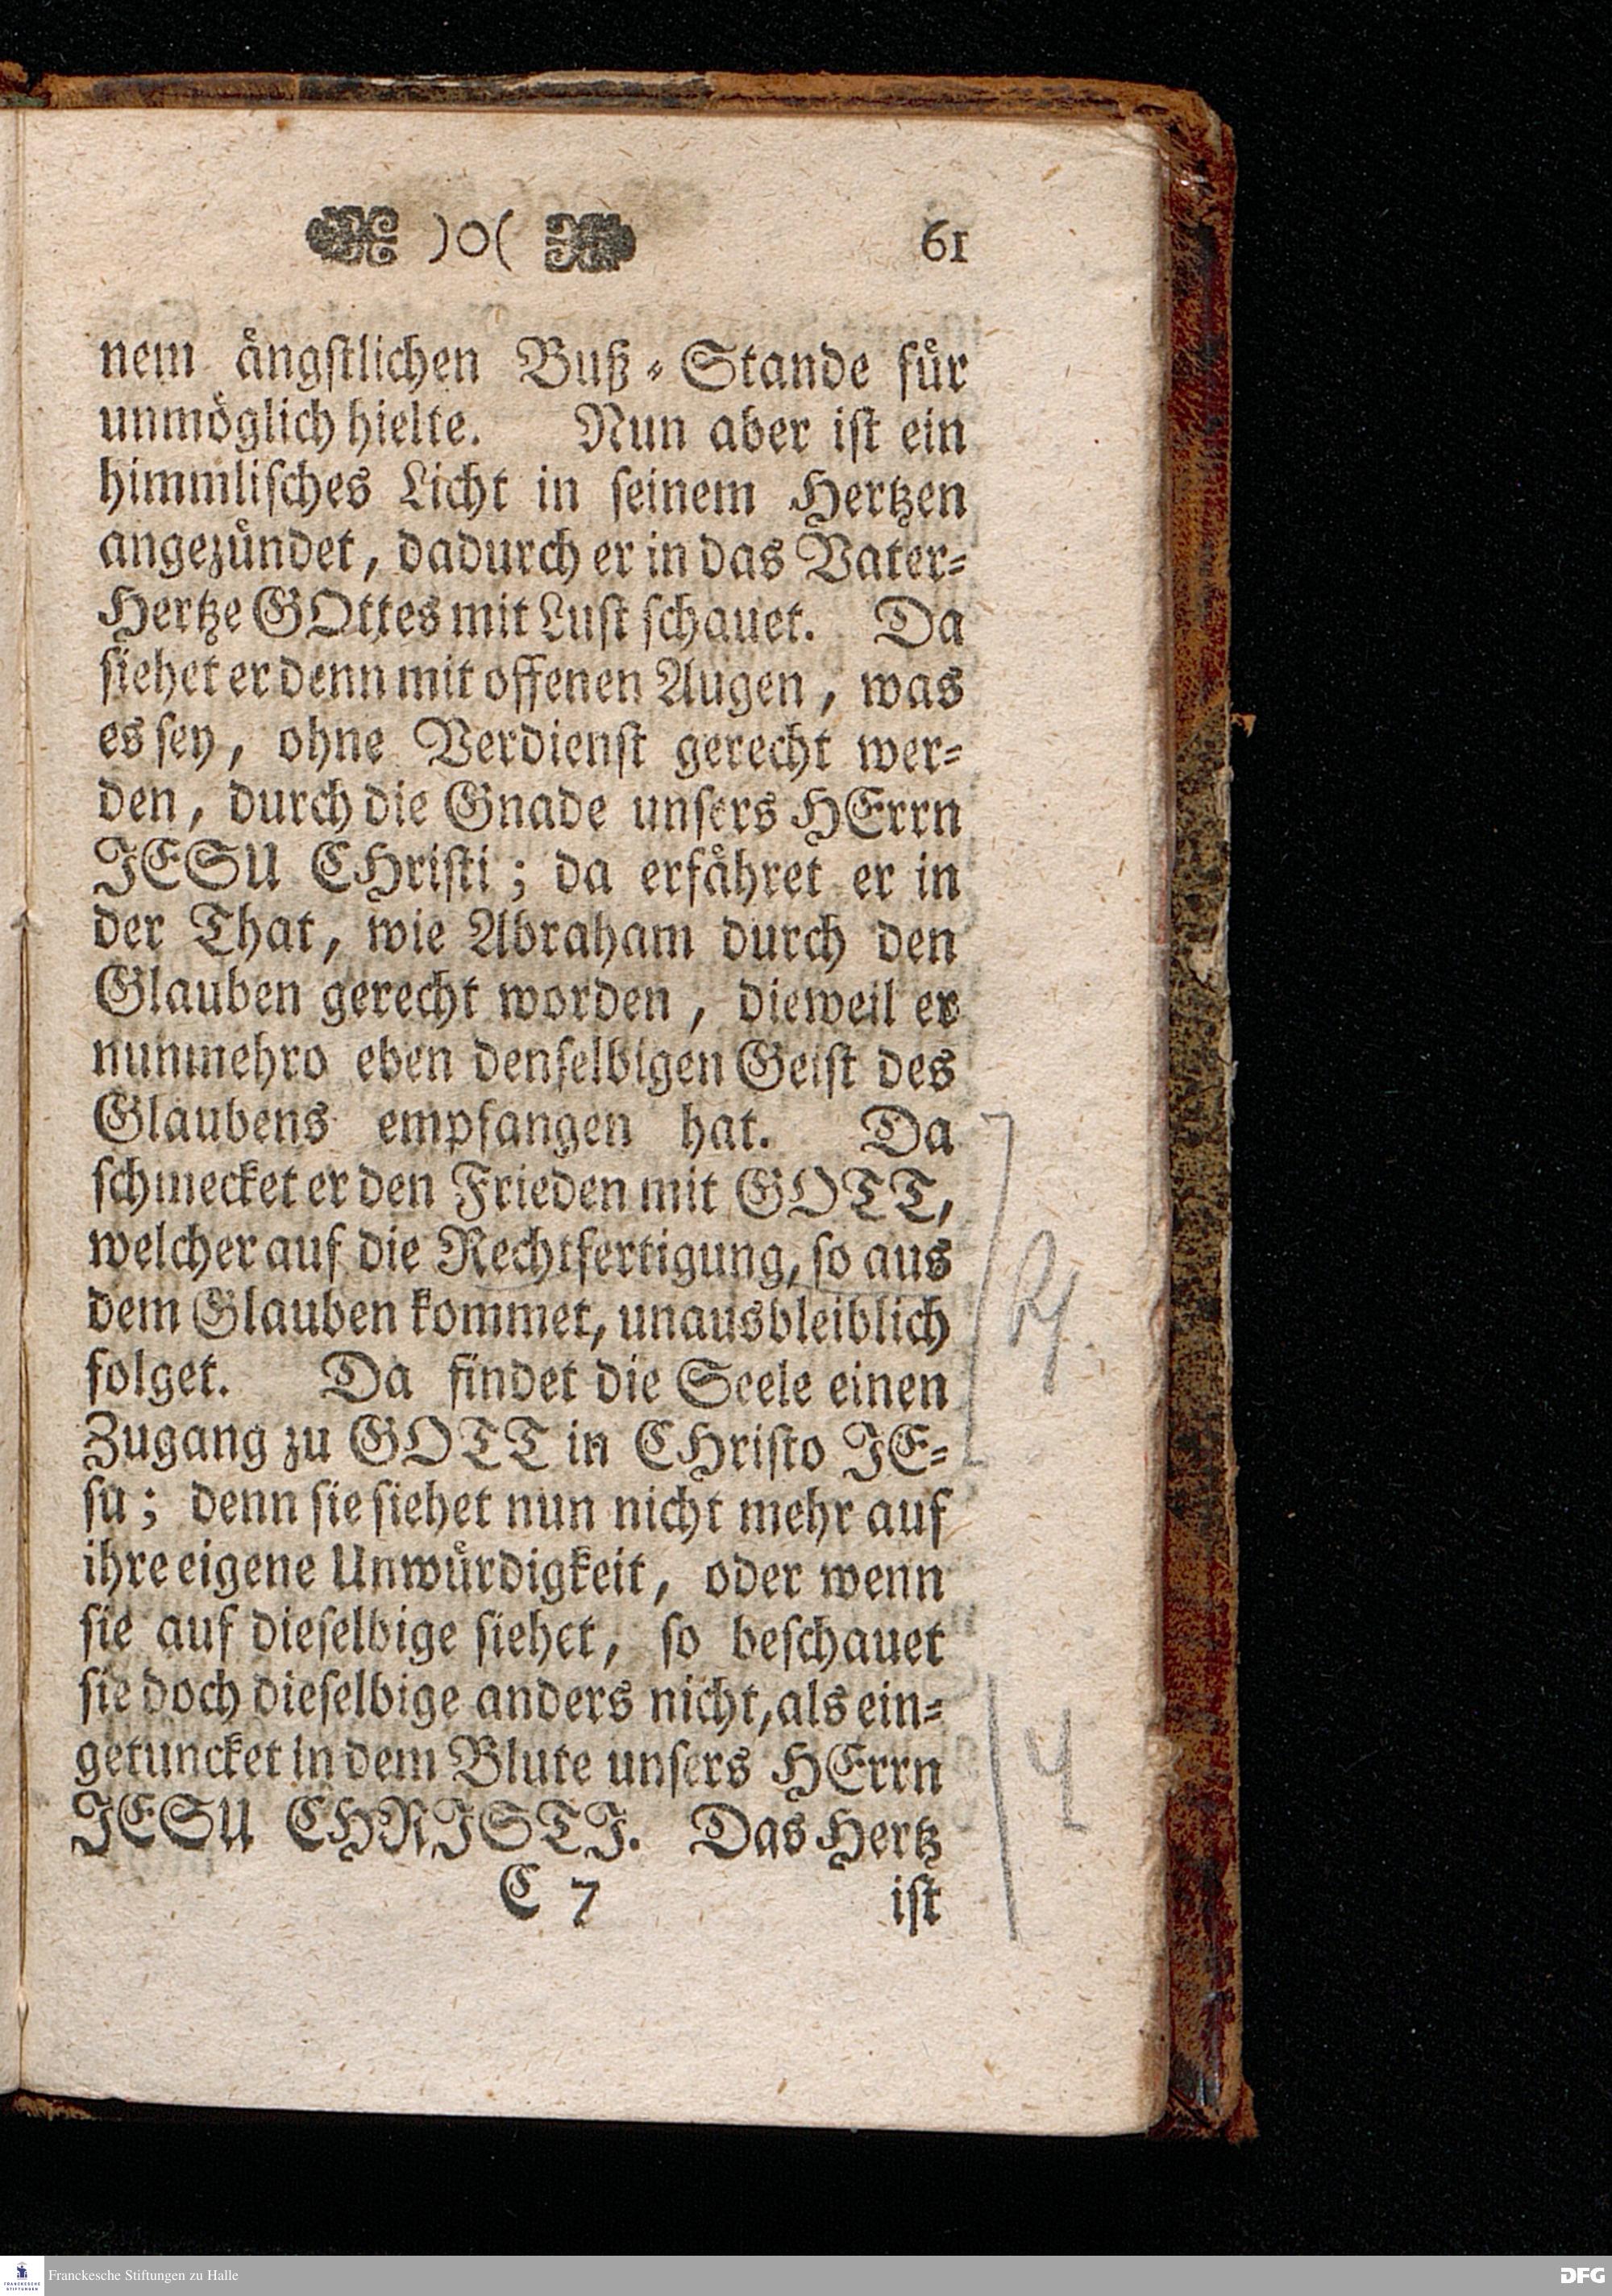 )o( 61
nem ängstlichen Buß-Stande für
unmöglich hielte. Nun aber ist ein
himmlisches Licht in seinem Hertzen
angezündet, dadurch er in das Vater-
Hertze GOttes mit Lust schauet. Da
siehet er denn mit offenen Augen, was
es sey, ohne Verdienst gerecht wer-
den, durch die Gnade unsers HErrn
JESU CHristi; da erfähret er in
der That, wie Abraham durch den
Glauben gerecht worden, dieweil er
nunmehro eben denselbigen Geist des
Glaubens empfangen hat. Da
schmecket er den Frieden mit GOTT,
welcher auf die Rechtfertigung, so aus
dem Glauben kommet, unausbleiblich
folget. Da findet die Seele einen
Zugang zu GOTT in CHristo JE-
su; denn sie siehet nun nicht mehr auf
ihre eigene Unwürdigkeit, oder wenn
sie auf dieselbige siehet, so beschauet
sie doch dieselbige anders nicht, als ein-
getuncket in dem Blute unsers HErrn
JESU CHRISTJ. Das Hertz
C 7 ist
FRANCKESCHE
STIFTUNGEN
Franckesche Stiftungen zu Halle
DFG